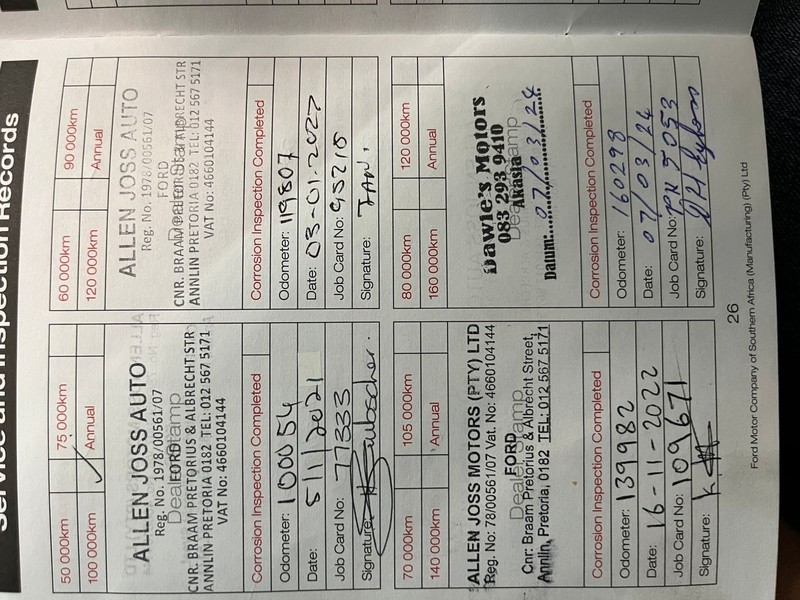 Service and Inspection Records
50 000km 75 000km
100 000km Annual
ALLEN JOSS AUTO
Reg. No. 1978/00561/07
FORD
Dealer Stamp
CNR. BRAAM PRETORIUS & ALBRECHT STR
ANNLIN PRETORIA 0182 TEL: 012 567 5171
VAT No: 4660104144
Corrosion Inspection Completed
Odometer: 100054
Date: 5/1/2021
Job Card No: 77333
Signature:
60 000km 90 000km
120 000km Annual
ALLEN JOSS AUTO
Reg. No. 1978/00561/07
FORD
Dealer Stamp
CNR. BRAAM PRETORIUS & ALBRECHT STR
ANNLIN PRETORIA 0182 TEL: 012 567 5171
VAT No: 4660104144
Corrosion Inspection Completed
Odometer: 119807
Date: 03-01-2022
Job Card No: 95215
Signature: JAN.
70 000km 105 000km
140 000km Annual
ALLEN JOSS MOTORS (PTY) LTD
Reg. No: 78/00561/07 Vat. No: 4660104144
FORD
Dealer Stamp
Cnr: Braam Pretorius & Albrecht Street,
Annlin, Pretoria, 0182 TEL: 012 567 5171
Corrosion Inspection Completed
Odometer: 139982
Date: 16-11-2022
Job Card No: 109671
Signature:
80 000km 120 000km
160 000km Annual
Dawie's Motors
083 293 9410
Akasia
Dealer Stamp
Datum: 07/03/24
Corrosion Inspection Completed
Odometer: 160298
Date: 07/03/24
Job Card No:
Signature:
26
Ford Motor Company of Southern Africa (Manufacturing) (Pty) Ltd